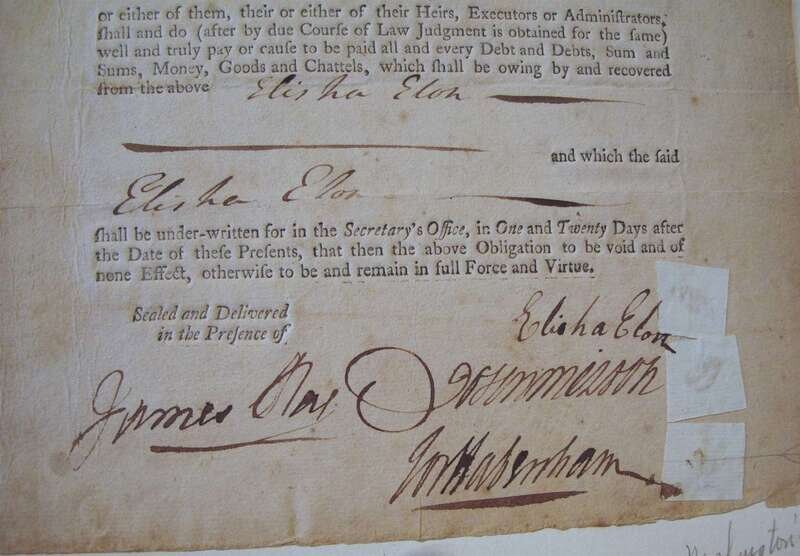 or either of them, their or either of their Heirs, Executors or Administrators,
shall and do (after by due Course of Law Judgment is obtained for the same)
well and truly pay or cause to be paid all and every Debt and Debts, Sum and
Sums, Money, Goods and Chattels, which shall be owing by and recovered
from the above Elisha Elon
and which the said
Elisha Elon
shall be under-written for in the Secretary's Office, in One and Twenty Days after
the Date of these Presents, that then the above Obligation to be void and of
none Effect, otherwise to be and remain in full Force and Virtue.
Sealed and Delivered
in the Presence of
Elisha Elon
James
Habersham